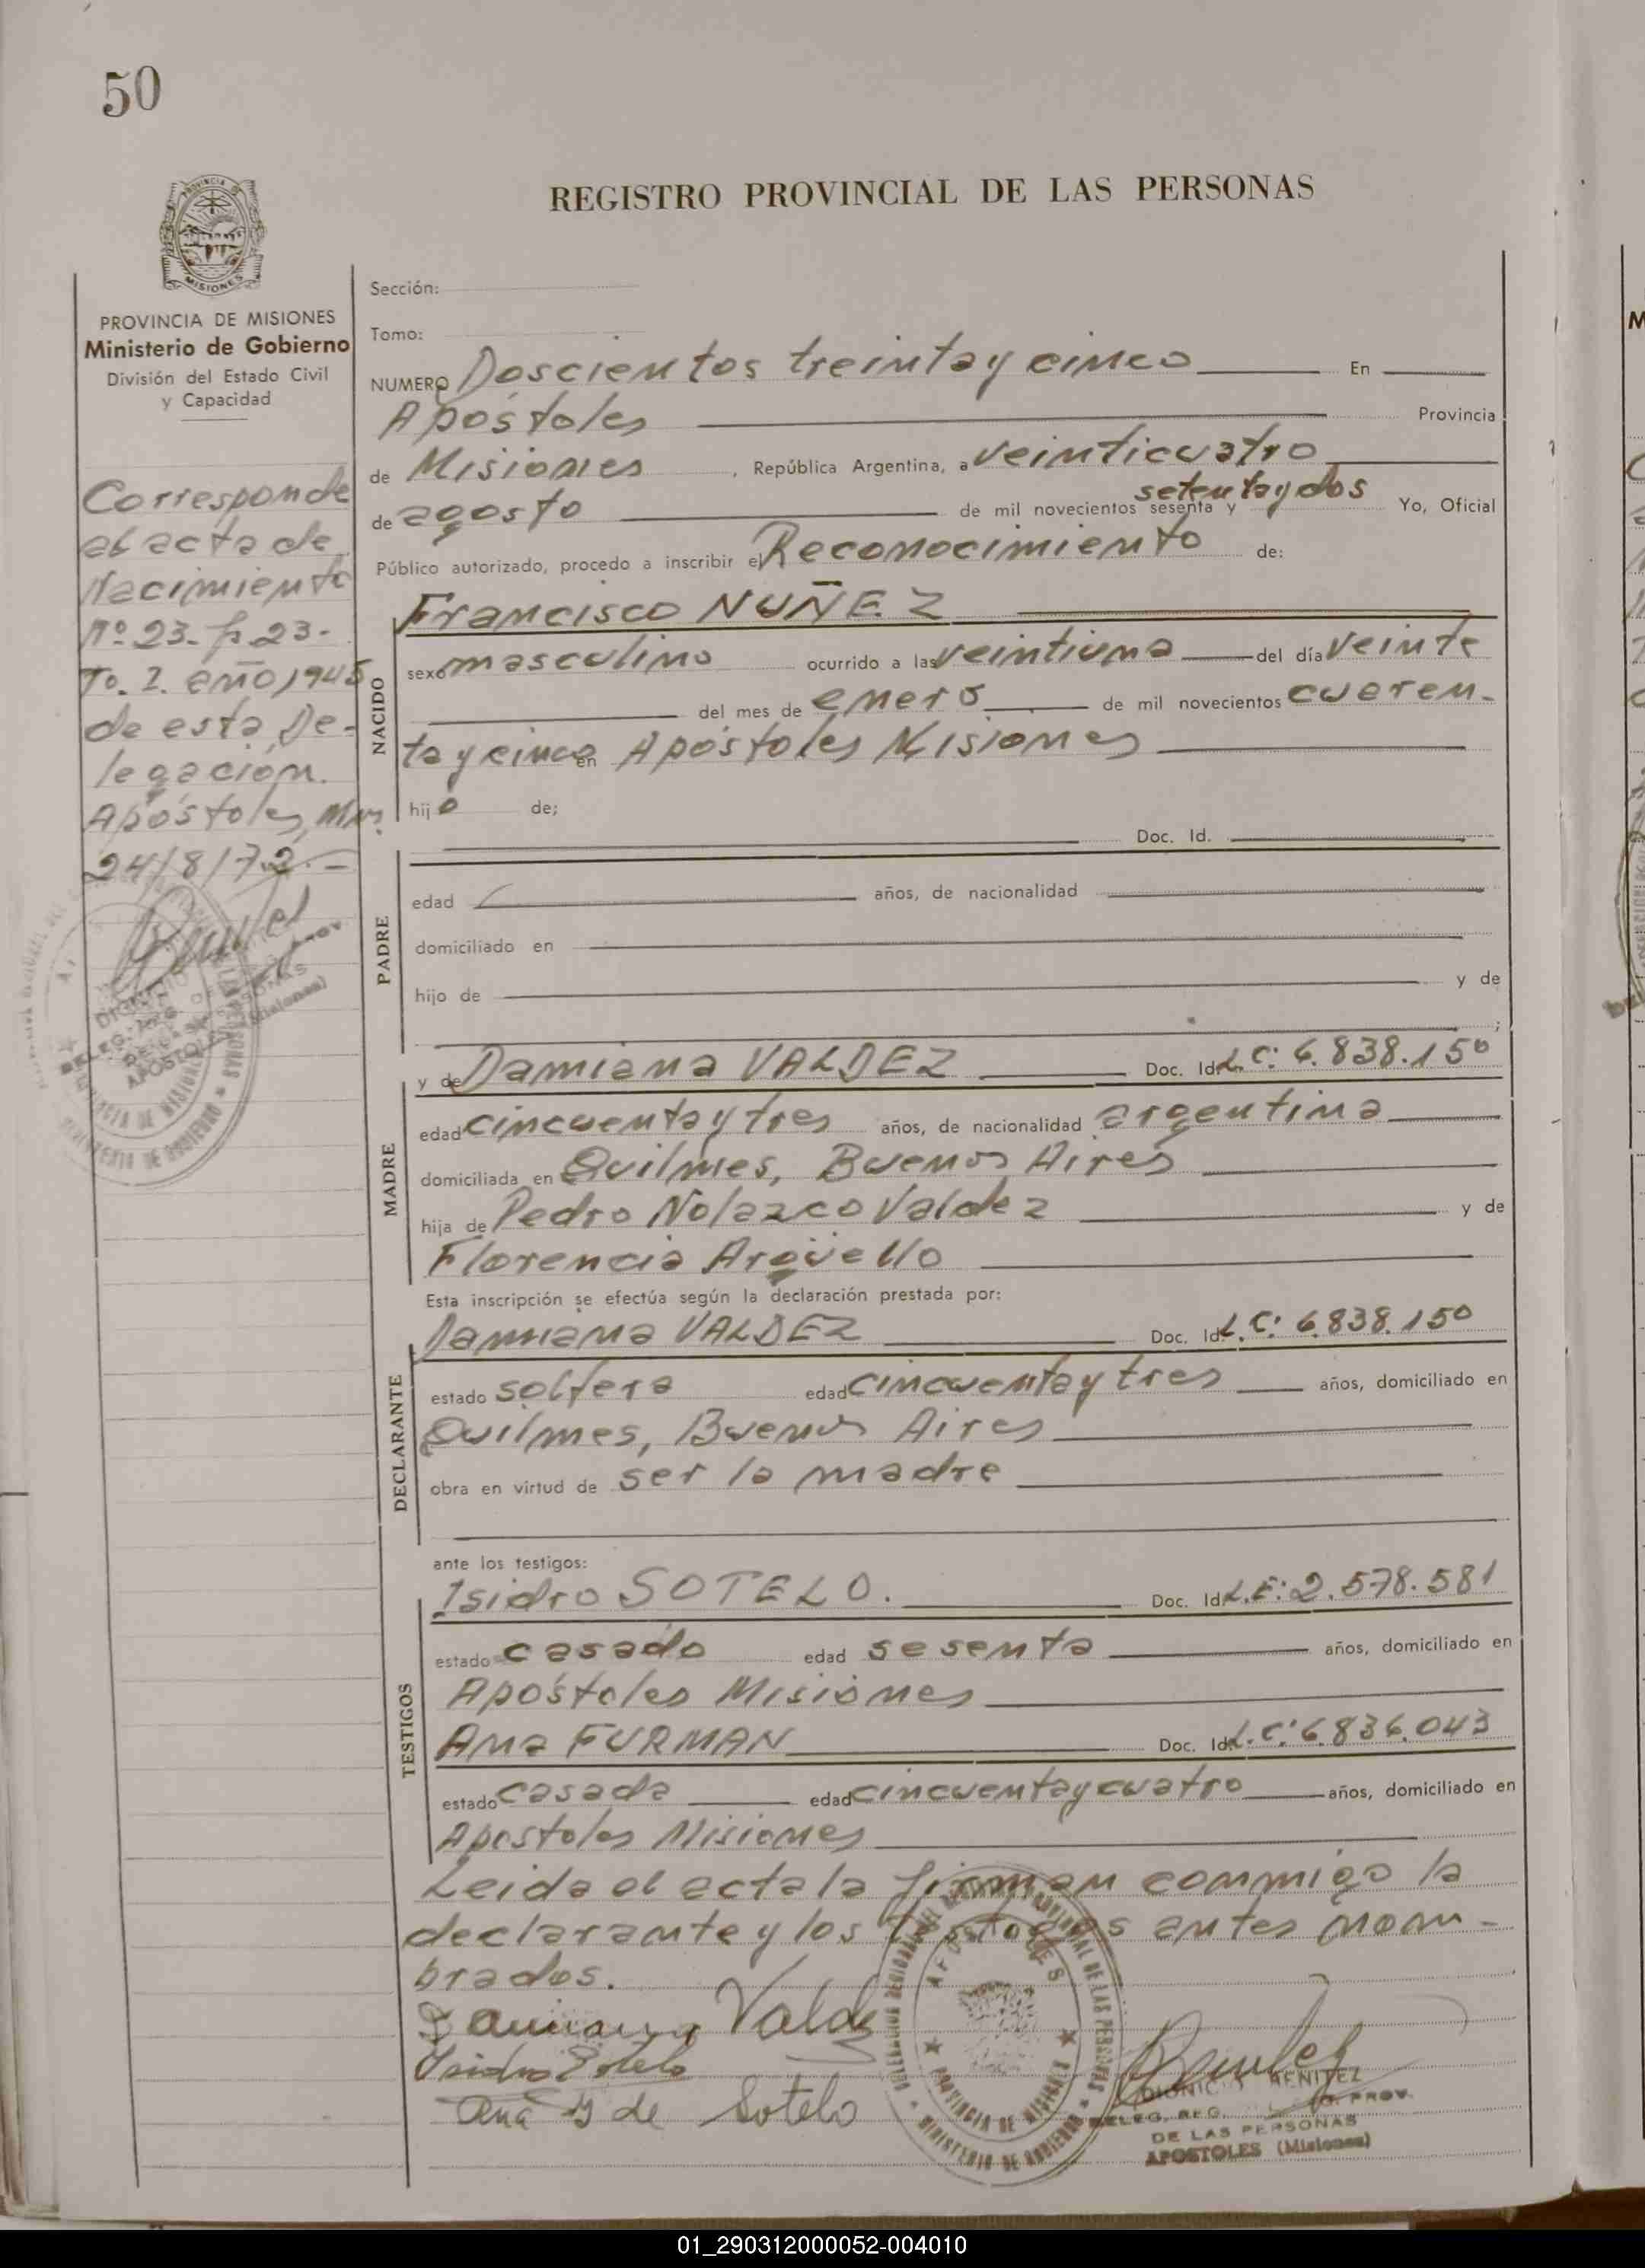 50
REGISTRO PROVINCIAL DE LAS PERSONAS
PROVINCIA DE
MISIONES
PROVINCIA DE MISIONES
Ministerio de Gobierno
División del Estado Civil
y Capacidad
Corresponde
al acta de
Nacimiento
Nº 23- fº 23-
Tº. I. año 1945
de esta De-
legación.
Apóstoles, Mnes.
24/8/72.-
Sección:
Tomo:
NUMERO Doscientos treinta y cinco En
Apóstoles Provincia
de Misiones, República Argentina, a veinticuatro
de agosto de mil novecientos sesenta y setenta y dos Yo, Oficial
Público autorizado, procedo a inscribir el Reconocimiento de:
NACIDO
Francisco NUÑEZ
sexo masculino ocurrido a las veintiuna del día veinte
del mes de enero de mil novecientos cuaren-
ta y cinco en Apóstoles Misiones
hijo de;
Doc. Id.
PADRE
edad años, de nacionalidad
domiciliado en
hijo de y de
;
MADRE
y de Damiana VALDEZ Doc. Id. L.C: 6.838.150
edad cincuenta y tres años, de nacionalidad argentina
domiciliada en Quilmes, Buenos Aires
hija de Pedro Nolazco Valdez y de
Florencia Argüello
Esta inscripción se efectúa según la declaración prestada por:
DECLARANTE
Damiana VALDEZ Doc. Id. L.C: 6.838.150
estado soltera edad cincuenta y tres años, domiciliado en
Quilmes, Buenos Aires
obra en virtud de ser la madre
ante los testigos:
TESTIGOS
Isidro SOTELO. Doc. Id. L.E: 2.578.581
estado casado edad sesenta años, domiciliado en
Apóstoles Misiones
Ana FURMAN Doc. Id. L.C: 6.836.043
estado casada edad cincuenta y cuatro años, domiciliado en
Apostoles Misiones
Leida el acta la firman conmigo la
declarante y los testigos antes nom-
brados.
Damiana Valdez
Isidro Sotelo
Ana de Sotelo
APOSTOLES
PROVINCIA DE MISIONES
MINISTERIO DE GOBIERNO
DIONICIO BENITEZ
DELEG. REG. PROV.
DE LAS PERSONAS
APOSTOLES (Misiones)
01_290312000052-004010